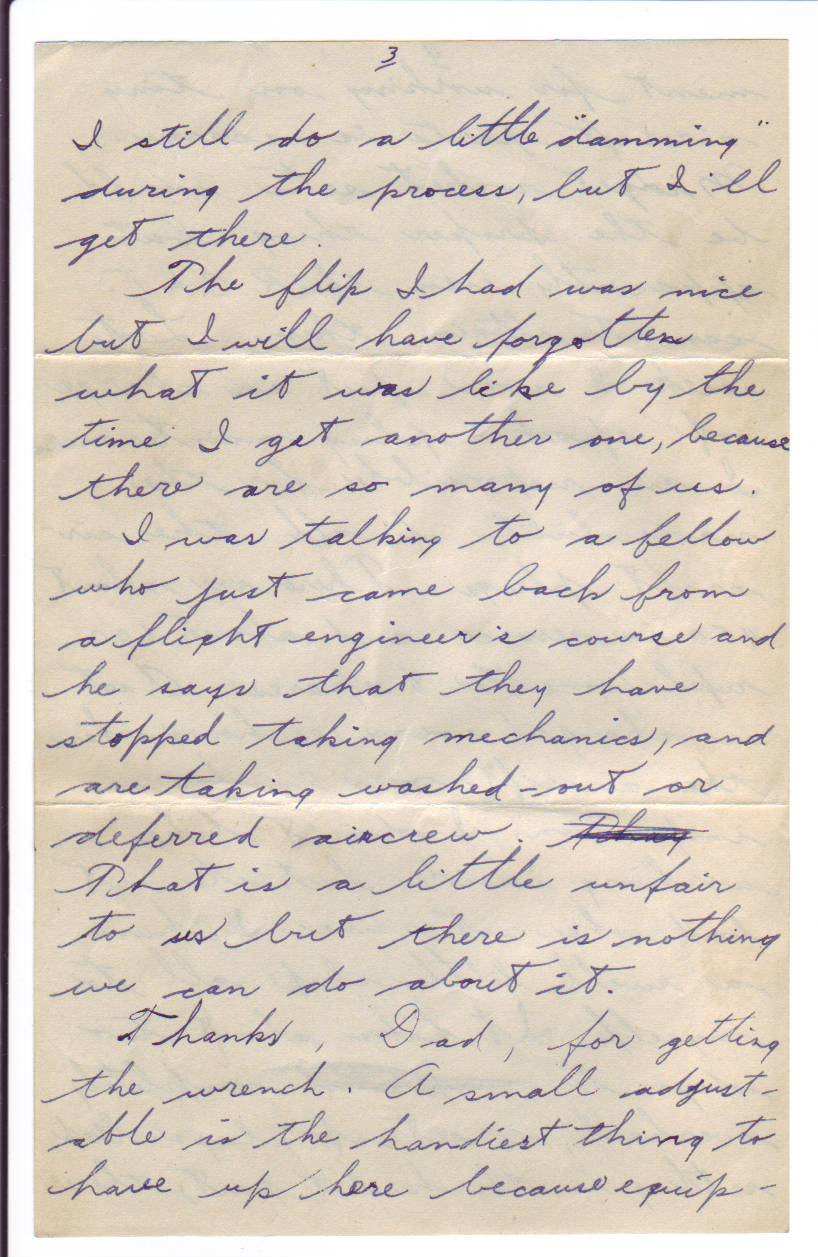 3
I still do a little "damming"
during the process, but I'll
get there.
The flip I had was nice
but I will have forgotten
what it was like by the
time I get another one, because
there are so many of us.
I was talking to a fellow
who just came back from
a flight engineer's course and
he says that they have
stopped taking mechanics, and
are taking washed-out or
deferred aircrew.
That is a little unfair
to us but there is nothing
we can do about it.
Thanks, Dad, for getting
the wrench. A small adjust-
able is the handiest thing to
have up here because equip-